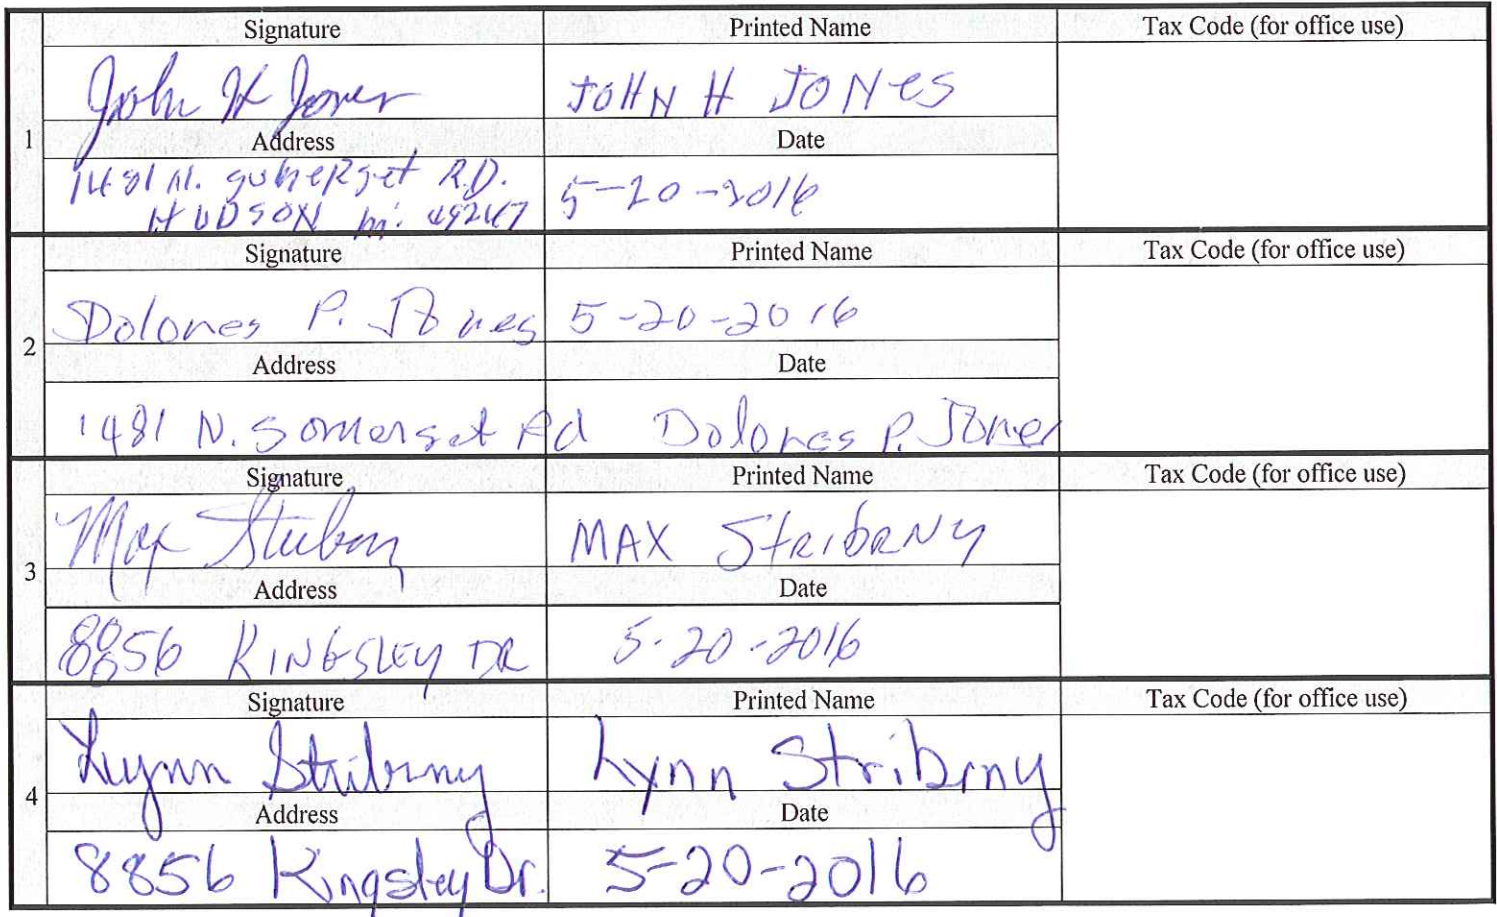 Signature Printed Name Tax Code (for office use)
John H Jones JOHN H JONES
1 Address Date
1481 N. somerset R.D. 5-20-2016
HUDSON mi. 49247
Signature Printed Name Tax Code (for office use)
Dolores P. Jones 5-20-2016
2 Address Date
1481 N. Somerset Rd Dolores P. Jones
Signature Printed Name Tax Code (for office use)
Max Stribrny MAX STRIBRNY
3 Address Date
8856 KINGSLEY DR 5-20-2016
Signature Printed Name Tax Code (for office use)
Lynn Stribrny Lynn Stribrny
4 Address Date
8856 Kingsley Dr. 5-20-2016